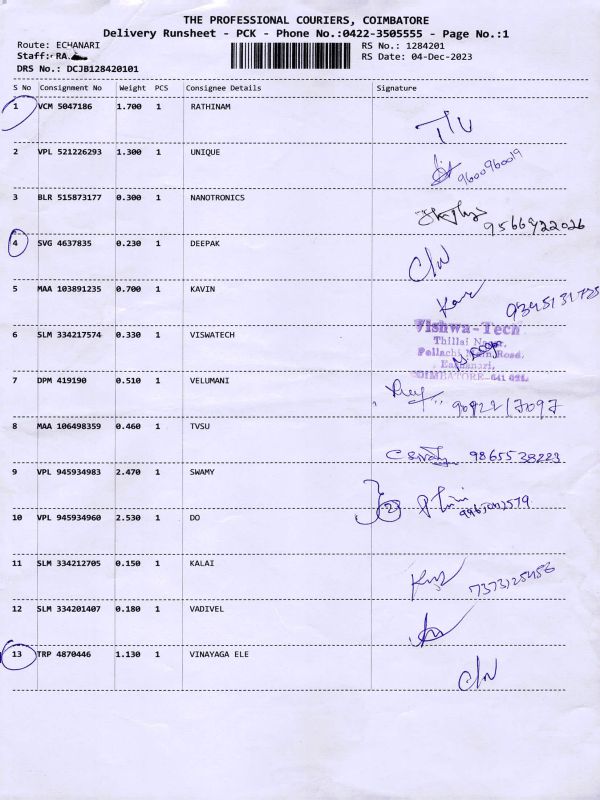 THE PROFESSIONAL COURIERS, COIMBATORE
Delivery Runsheet - PCK - Phone No.:0422-3505555 - Page No.:1
Route: ECHANARI
RS No.: 1284201
Staff: RA.
RS Date: 04-Dec-2023
DRS No.: DCJB128420101
S No Consignment No Weight PCS Consignee Details Signature
1 VCM 5047186 1.700 1 RATHINAM
2 VPL 521226293 1.300 1 UNIQUE
9600960019
3 BLR 515873177 0.300 1 NANOTRONICS
4 SVG 4637835 0.230 1 DEEPAK
5 MAA 103891235 0.700 1 KAVIN
6 SLM 334217574 0.330 1 VISWATECH
Vishwa-Tech
Thillai Nagar,
Pollachi Main Road,
Eachanari,
COIMBATORE-641 021.
7 DPM 419190 0.510 1 VELUMANI
8 MAA 106498359 0.460 1 TVSU
9865538223
9 VPL 945934983 2.470 1 SWAMY
2
10 VPL 945934960 2.530 1 DO
11 SLM 334212705 0.150 1 KALAI
12 SLM 334201407 0.180 1 VADIVEL
13 TRP 4870446 1.130 1 VINAYAGA ELE